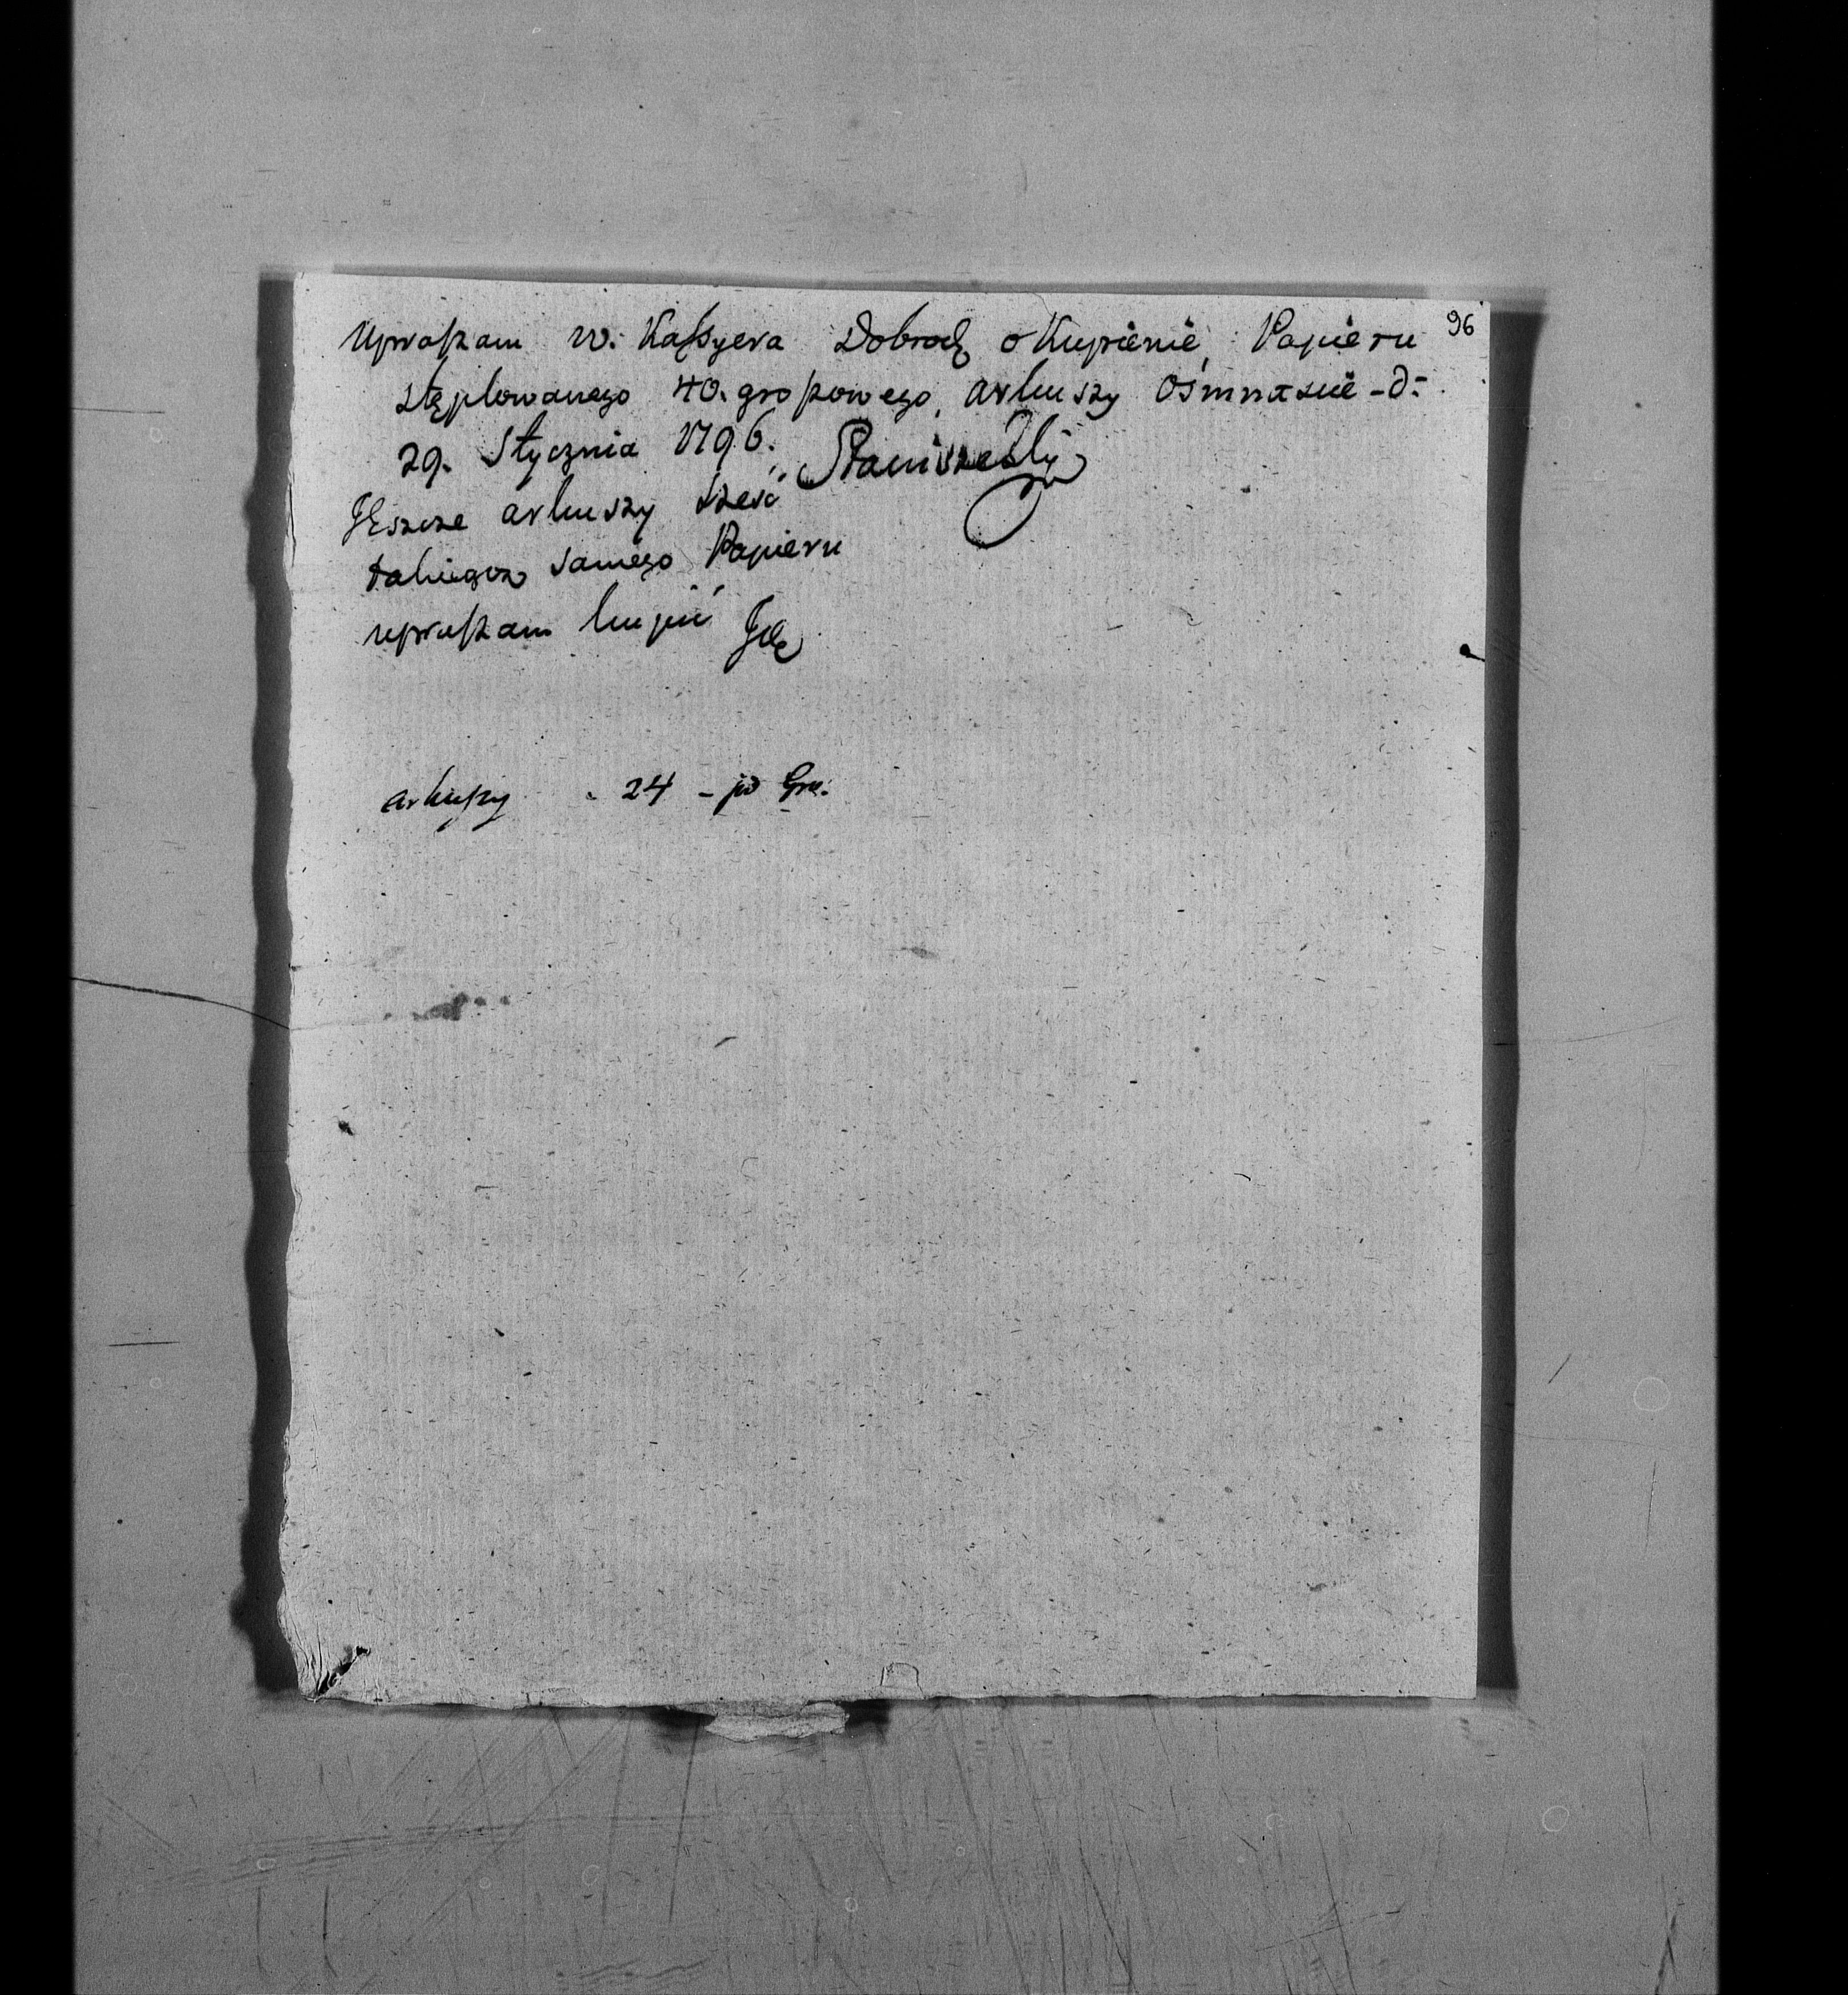 96
Upraszam W: Kassyera Dobrodz o Kupienie, Papieru
stęplowanego 40. groszowego, arkuszy Osmnascie - d:
29. Stycznia 1796.
Jeszcze arkuszy sześć
takiegoz samego Papieru
upraszam kupić
arkuszy 24 - po